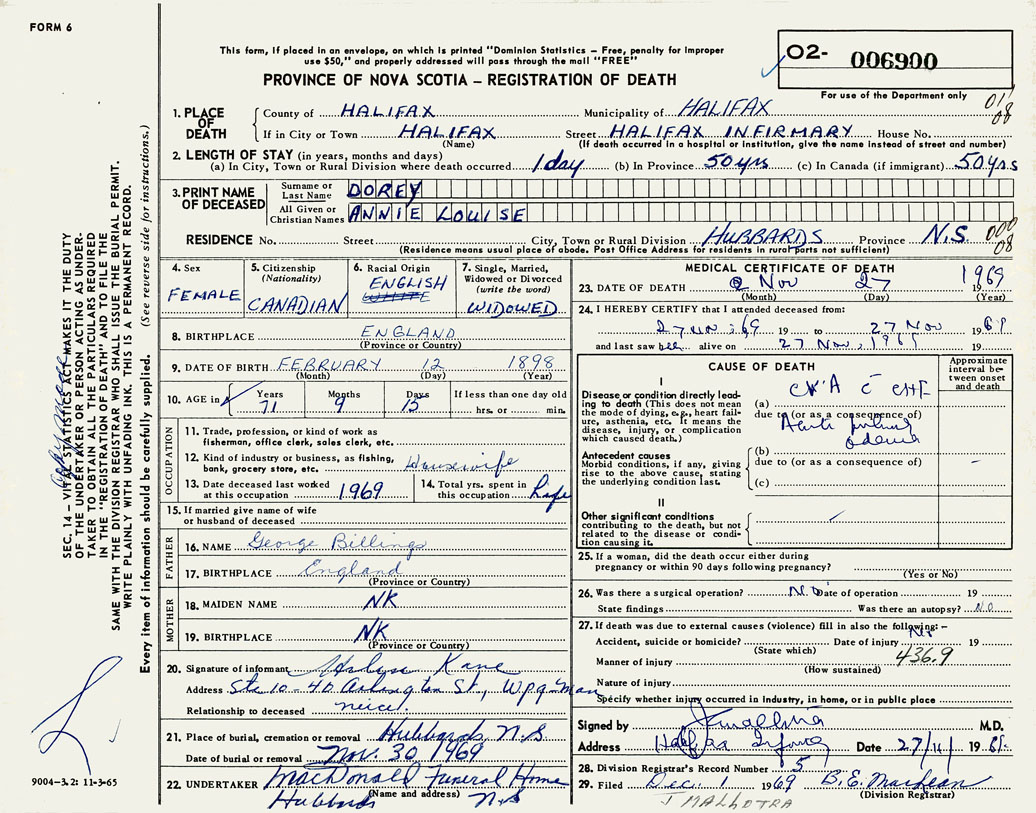 FORM 6
This form, if placed in an envelope, on which is printed "Dominion Statistics – Free, penalty for improper
use $50," and properly addressed will pass through the mail "FREE"
PROVINCE OF NOVA SCOTIA – REGISTRATION OF DEATH
02- 006900
For use of the Department only
1. PLACE OF DEATH
County of HALIFAX Municipality of HALIFAX
If in City or Town HALIFAX Street HALIFAX INFIRMARY House No.
(Name) (If death occurred in a hospital or institution, give the name instead of street and number)
2. LENGTH OF STAY (in years, months and days)
(a) In City, Town or Rural Division where death occurred 1 day (b) In Province 50 yrs (c) In Canada (if immigrant) 50 yrs
3. PRINT NAME OF DECEASED
Surname or Last Name DOREY
All Given or Christian Names ANNIE LOUISE
RESIDENCE No. Street City, Town or Rural Division HUBBARDS Province N.S.
(Residence means usual place of abode. Post Office Address for residents in rural parts not sufficient)
000
08
4. Sex FEMALE
5. Citizenship (Nationality) CANADIAN
6. Racial Origin ENGLISH
7. Single, Married, Widowed or Divorced (write the word) WIDOWED
8. BIRTHPLACE ENGLAND
(Province or Country)
9. DATE OF BIRTH FEBRUARY 12 1898
(Month) (Day) (Year)
10. AGE in Years 71 Months 9 Days 15 If less than one day old hrs. or min.
OCCUPATION
11. Trade, profession, or kind of work as fisherman, office clerk, sales clerk, etc.
12. Kind of industry or business, as fishing, bank, grocery store, etc. Housewife
13. Date deceased last worked at this occupation 1969
14. Total yrs. spent in this occupation Life
15. If married give name of wife or husband of deceased
FATHER
16. NAME George Billings
17. BIRTHPLACE England
(Province or Country)
MOTHER
18. MAIDEN NAME NK
19. BIRTHPLACE NK
(Province or Country)
20. Signature of informant Kane
Address Ste 10 - 40 Arlington St., Wpg-Man
Relationship to deceased neice.
21. Place of burial, cremation or removal Hubbards, N.S.
Date of burial or removal Nov. 30, 1969
22. UNDERTAKER MacDonald Funeral Home
(Name and address)
Hubbards N.S
MEDICAL CERTIFICATE OF DEATH
23. DATE OF DEATH Nov 27 1969
(Month) (Day) (Year)
24. I HEREBY CERTIFY that I attended deceased from:
19 to 27 Nov 1969
and last saw her alive on 27 Nov, 1969 19
CAUSE OF DEATH
Approximate interval between onset and death
I
Disease or condition directly leading to death (This does not mean the mode of dying, e.g., heart failure, asthenia, etc. It means the disease, injury, or complication which caused death.)
(a) CVA c CHF
due to (or as a consequence of)
Acute
(b) odema
due to (or as a consequence of)
(c)
Antecedent causes
Morbid conditions, if any, giving rise to the above cause, stating the underlying condition last.
II
Other significant conditions contributing to the death, but not related to the disease or condition causing it.
25. If a woman, did the death occur either during pregnancy or within 90 days following pregnancy?
(Yes or No)
26. Was there a surgical operation? No Date of operation 19
State findings Was there an autopsy? NO
27. If death was due to external causes (violence) fill in also the following: –
Accident, suicide or homicide? Date of injury 19
(State which)
436.9
Manner of injury
(How sustained)
Nature of injury
Specify whether injury occurred in industry, in home, or in public place
Signed by M.D.
Address Halifax Infirmary Date 27/11/ 1969
28. Division Registrar's Record Number 5
29. Filed Dec. 1 1969 B.E. MacLean
(Division Registrar)
J MALHOTRA
SEC. 14 – VITAL STATISTICS ACT MAKES IT THE DUTY
OF THE UNDERTAKER OR PERSON ACTING AS UNDER-
TAKER TO OBTAIN ALL THE PARTICULARS REQUIRED
IN THE "REGISTRATION OF DEATH" AND TO FILE THE
SAME WITH THE DIVISION REGISTRAR WHO SHALL ISSUE THE BURIAL PERMIT.
WRITE PLAINLY WITH UNFADING INK. THIS IS A PERMANENT RECORD.
Every item of information should be carefully supplied. (See reverse side for instructions.)
9004–3.2: 11-3-65